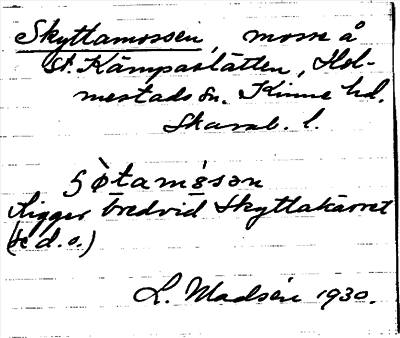 Skyttamossen, mosse å
St. Kämpastätten, Hol-
mestads sn. Kinne hd.
Skarab. l.
ʃøtamo̊sən
Ligger bredvid Skyttakärret
(se d. o.)
L. Madsén 1930.